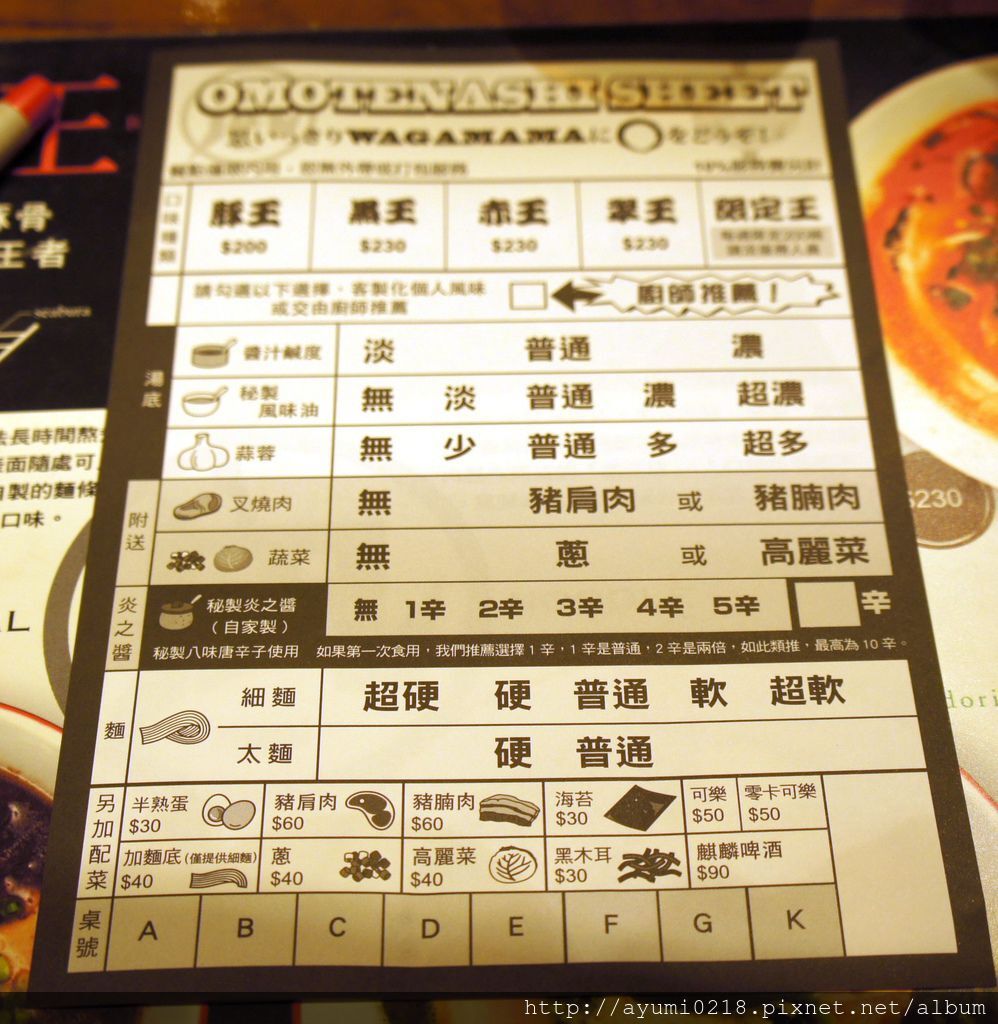 OMOTENASHI SHEET
思いっきりWAGAMAMAに◯をどうぞ!
口味種類
豚王 黒王 赤王 翠王 限定王
$200 $230 $230 $230
請勾選以下選擇,客製化個人風味
或交由廚師推薦
廚師推薦!
湯底
醬汁鹹度 淡 普通 濃
秘製風味油 無 淡 普通 濃 超濃
蒜蓉 無 少 普通 多 超多
附送
叉燒肉 無 豬肩肉 或 豬腩肉
蔬菜 無 蔥 或 高麗菜
炎之醬
秘製炎之醬
(自家製)
無 1辛 2辛 3辛 4辛 5辛 辛
秘製八味唐辛子使用 如果第一次食用,我們推薦選擇1辛,1辛是普通,2辛是兩倍,如此類推,最高為10辛。
麵
細麵 超硬 硬 普通 軟 超軟
太麵 硬 普通
另加配菜
半熟蛋 $30
豬肩肉 $60
豬腩肉 $60
海苔 $30
可樂 $50
零卡可樂 $50
加麵底(僅提供細麵) $40
蔥 $40
高麗菜 $40
黑木耳 $30
麒麟啤酒 $90
桌號 A B C D E F G K
豚骨
王者
長時間熬
面隨處可
製的麵條
口味。
$230
http://ayumi0218.pixnet.net/album